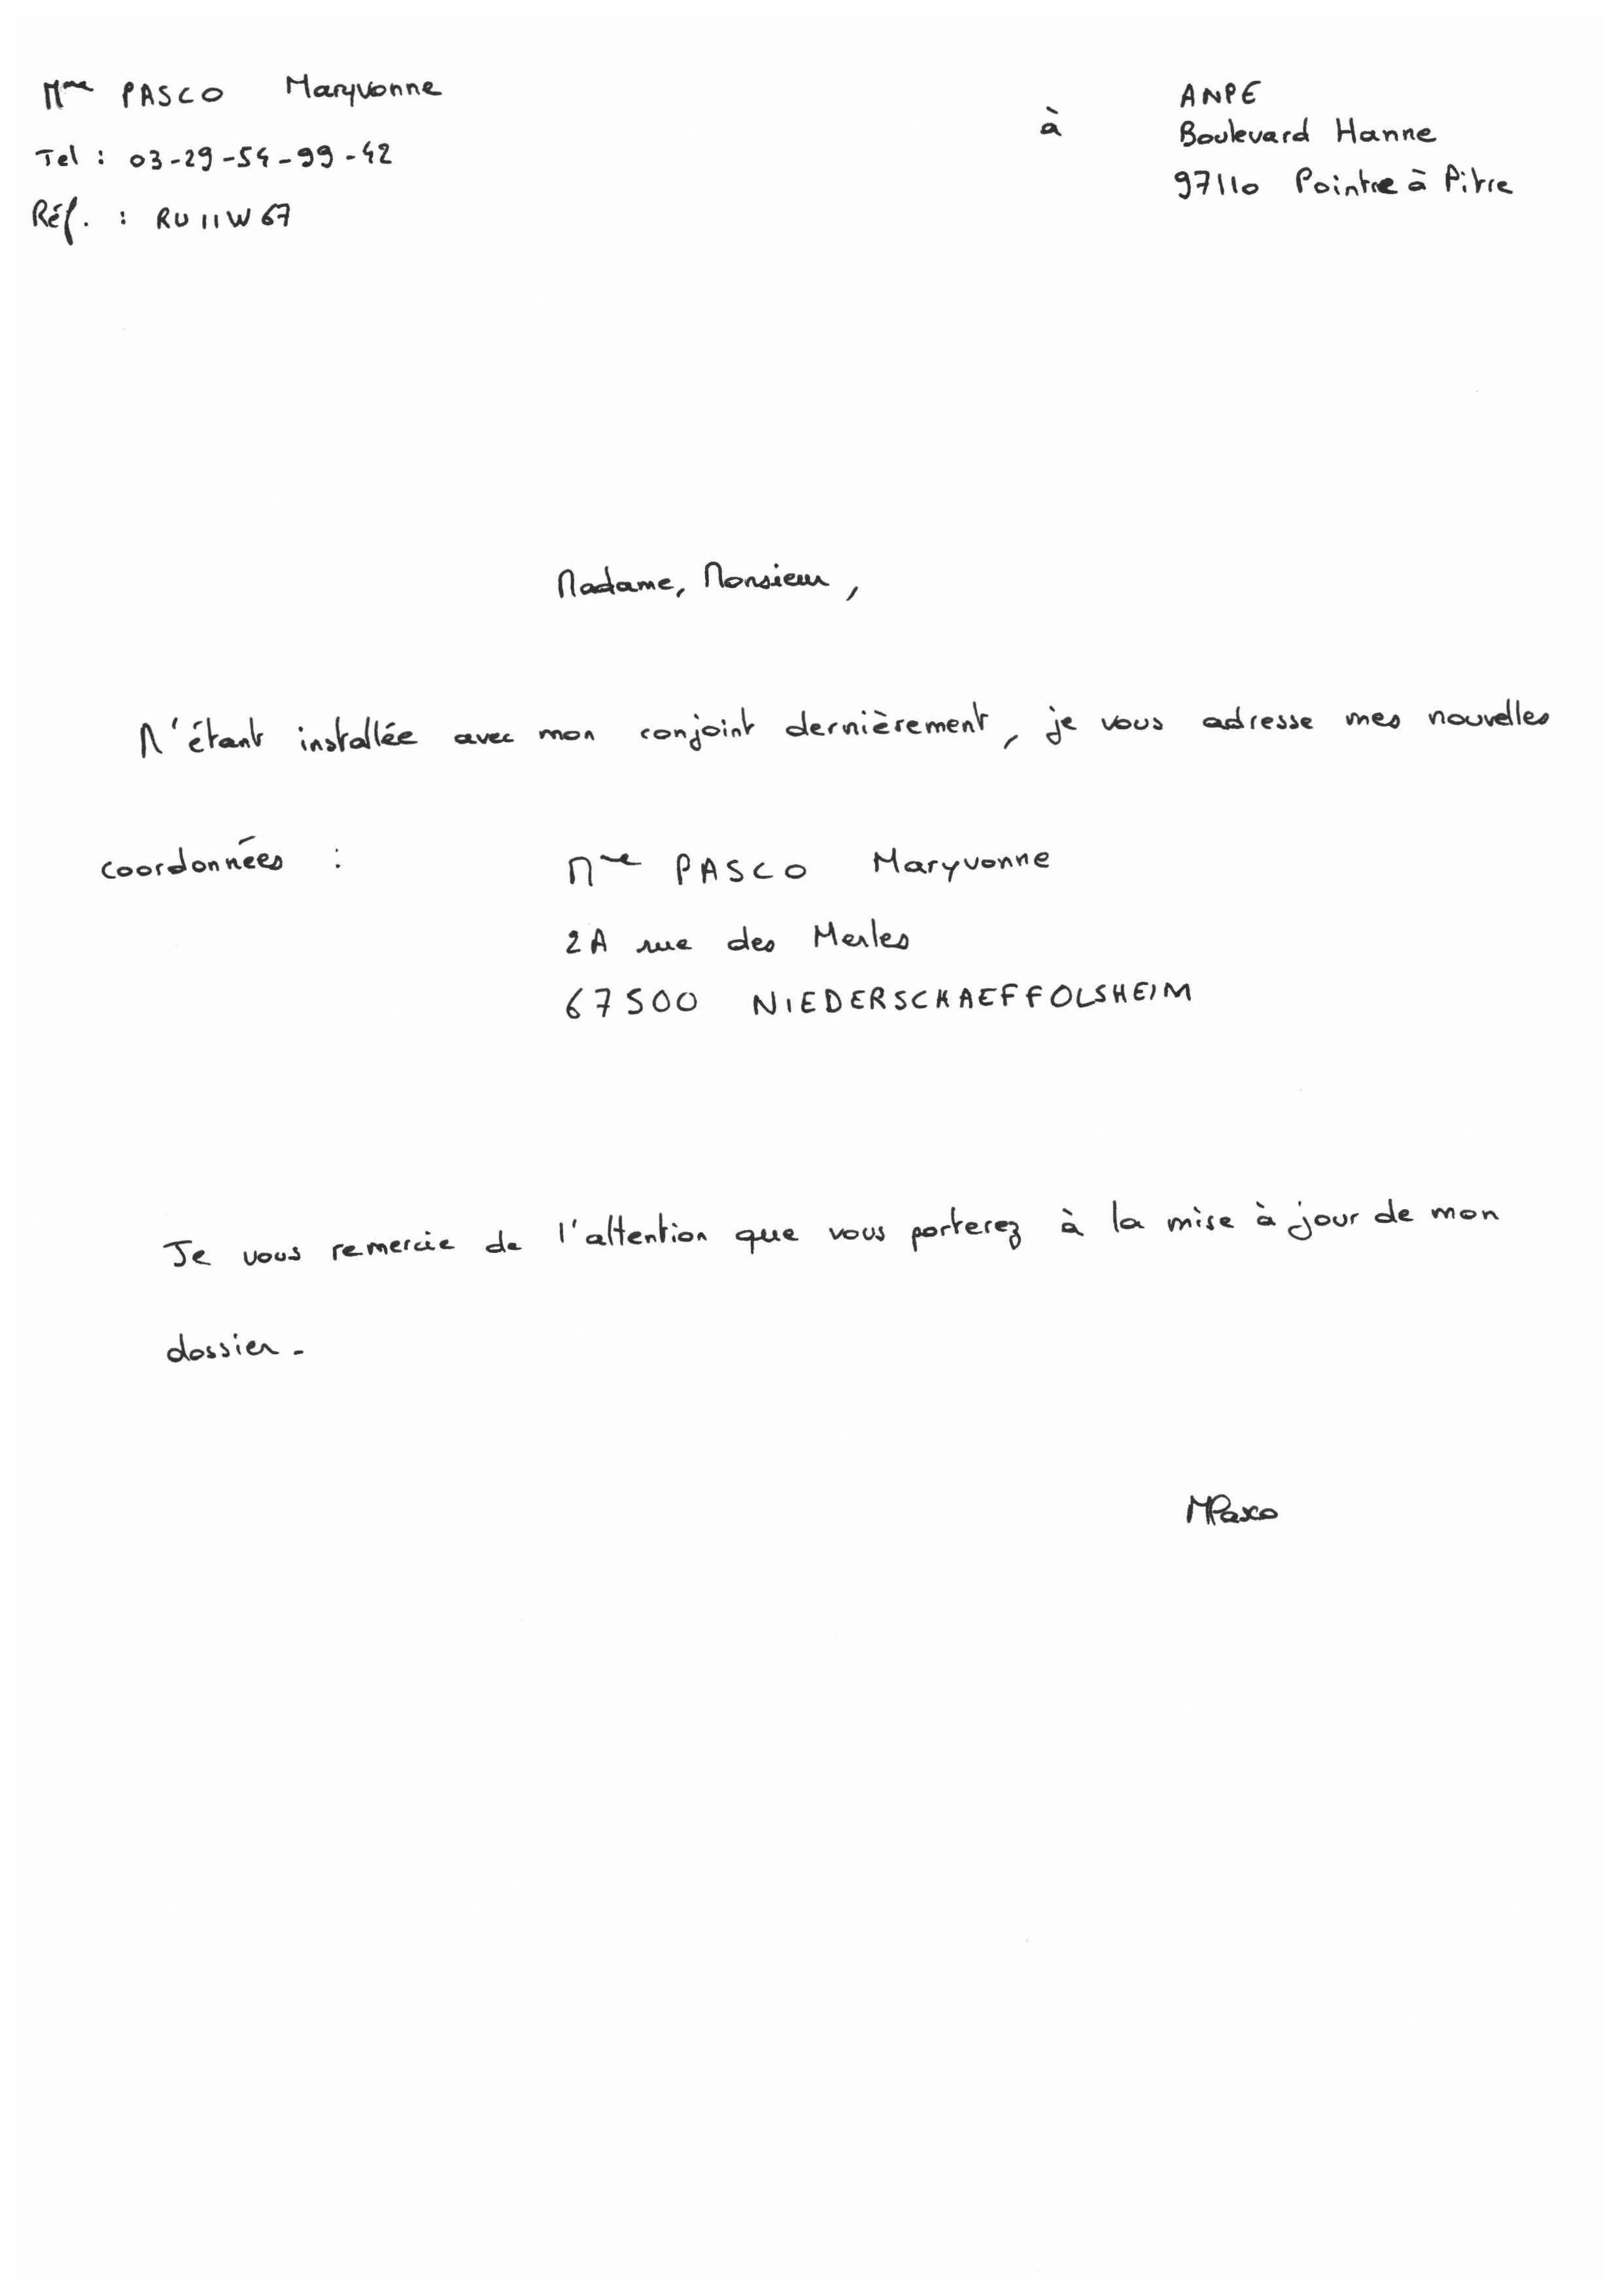 Mme PASCO Maryvonne
Tel : 03-29-54-99-42
Réf. : RU11W67
à
ANPE
Boulevard Hanne
97110 Pointre à Pitre
Madame, Monsieur,
M'étant installée avec mon conjoint dernièrement, je vous adresse mes nouvelles
coordonnées :
Mme PASCO Maryvonne
2A rue des Merles
67500 NIEDERSCHAEFFOLSHEIM
Je vous remercie de l'attention que vous porterez à la mise à jour de mon
dossier.
MPasco